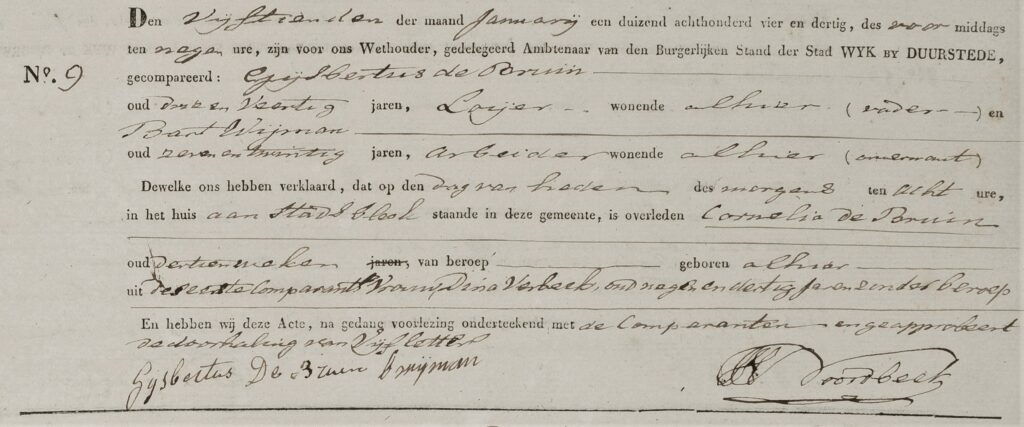 Den Vijftienden der maand Januarij een duizend achthonderd vier en dertig, des voor middags
ten negen ure, zijn voor ons Wethouder, gedelegeerd Ambtenaar van den Burgerlijken Stand der Stad WYK BY DUURSTEDE,
N°. 9
gecompareerd: Gijsbertus de Bruin
oud drie en Veertig jaren, Looijer wonende alhier (vader) en
Bart Wijman
oud zeven en twintig jaren, arbeider wonende alhier (overmant)
Dewelke ons hebben verklaard, dat op den dag van heden des morgens ten acht ure,
in het huis aan Stads bleek staande in deze gemeente, is overleden Cornelia de Bruin
oud dertien weken jaren, van beroep geboren alhier
uit des eerste Comparants Vrouw, Dina Verbeek, oud negen en dertig Jaren zonder beroep
En hebben wij deze Acte, na gedane voorlezing onderteekend met de Comparanten en geapprobeert
de doorhaling van Vijf letters
Gijsbertus De Bruin B Wijman
Noordbeek